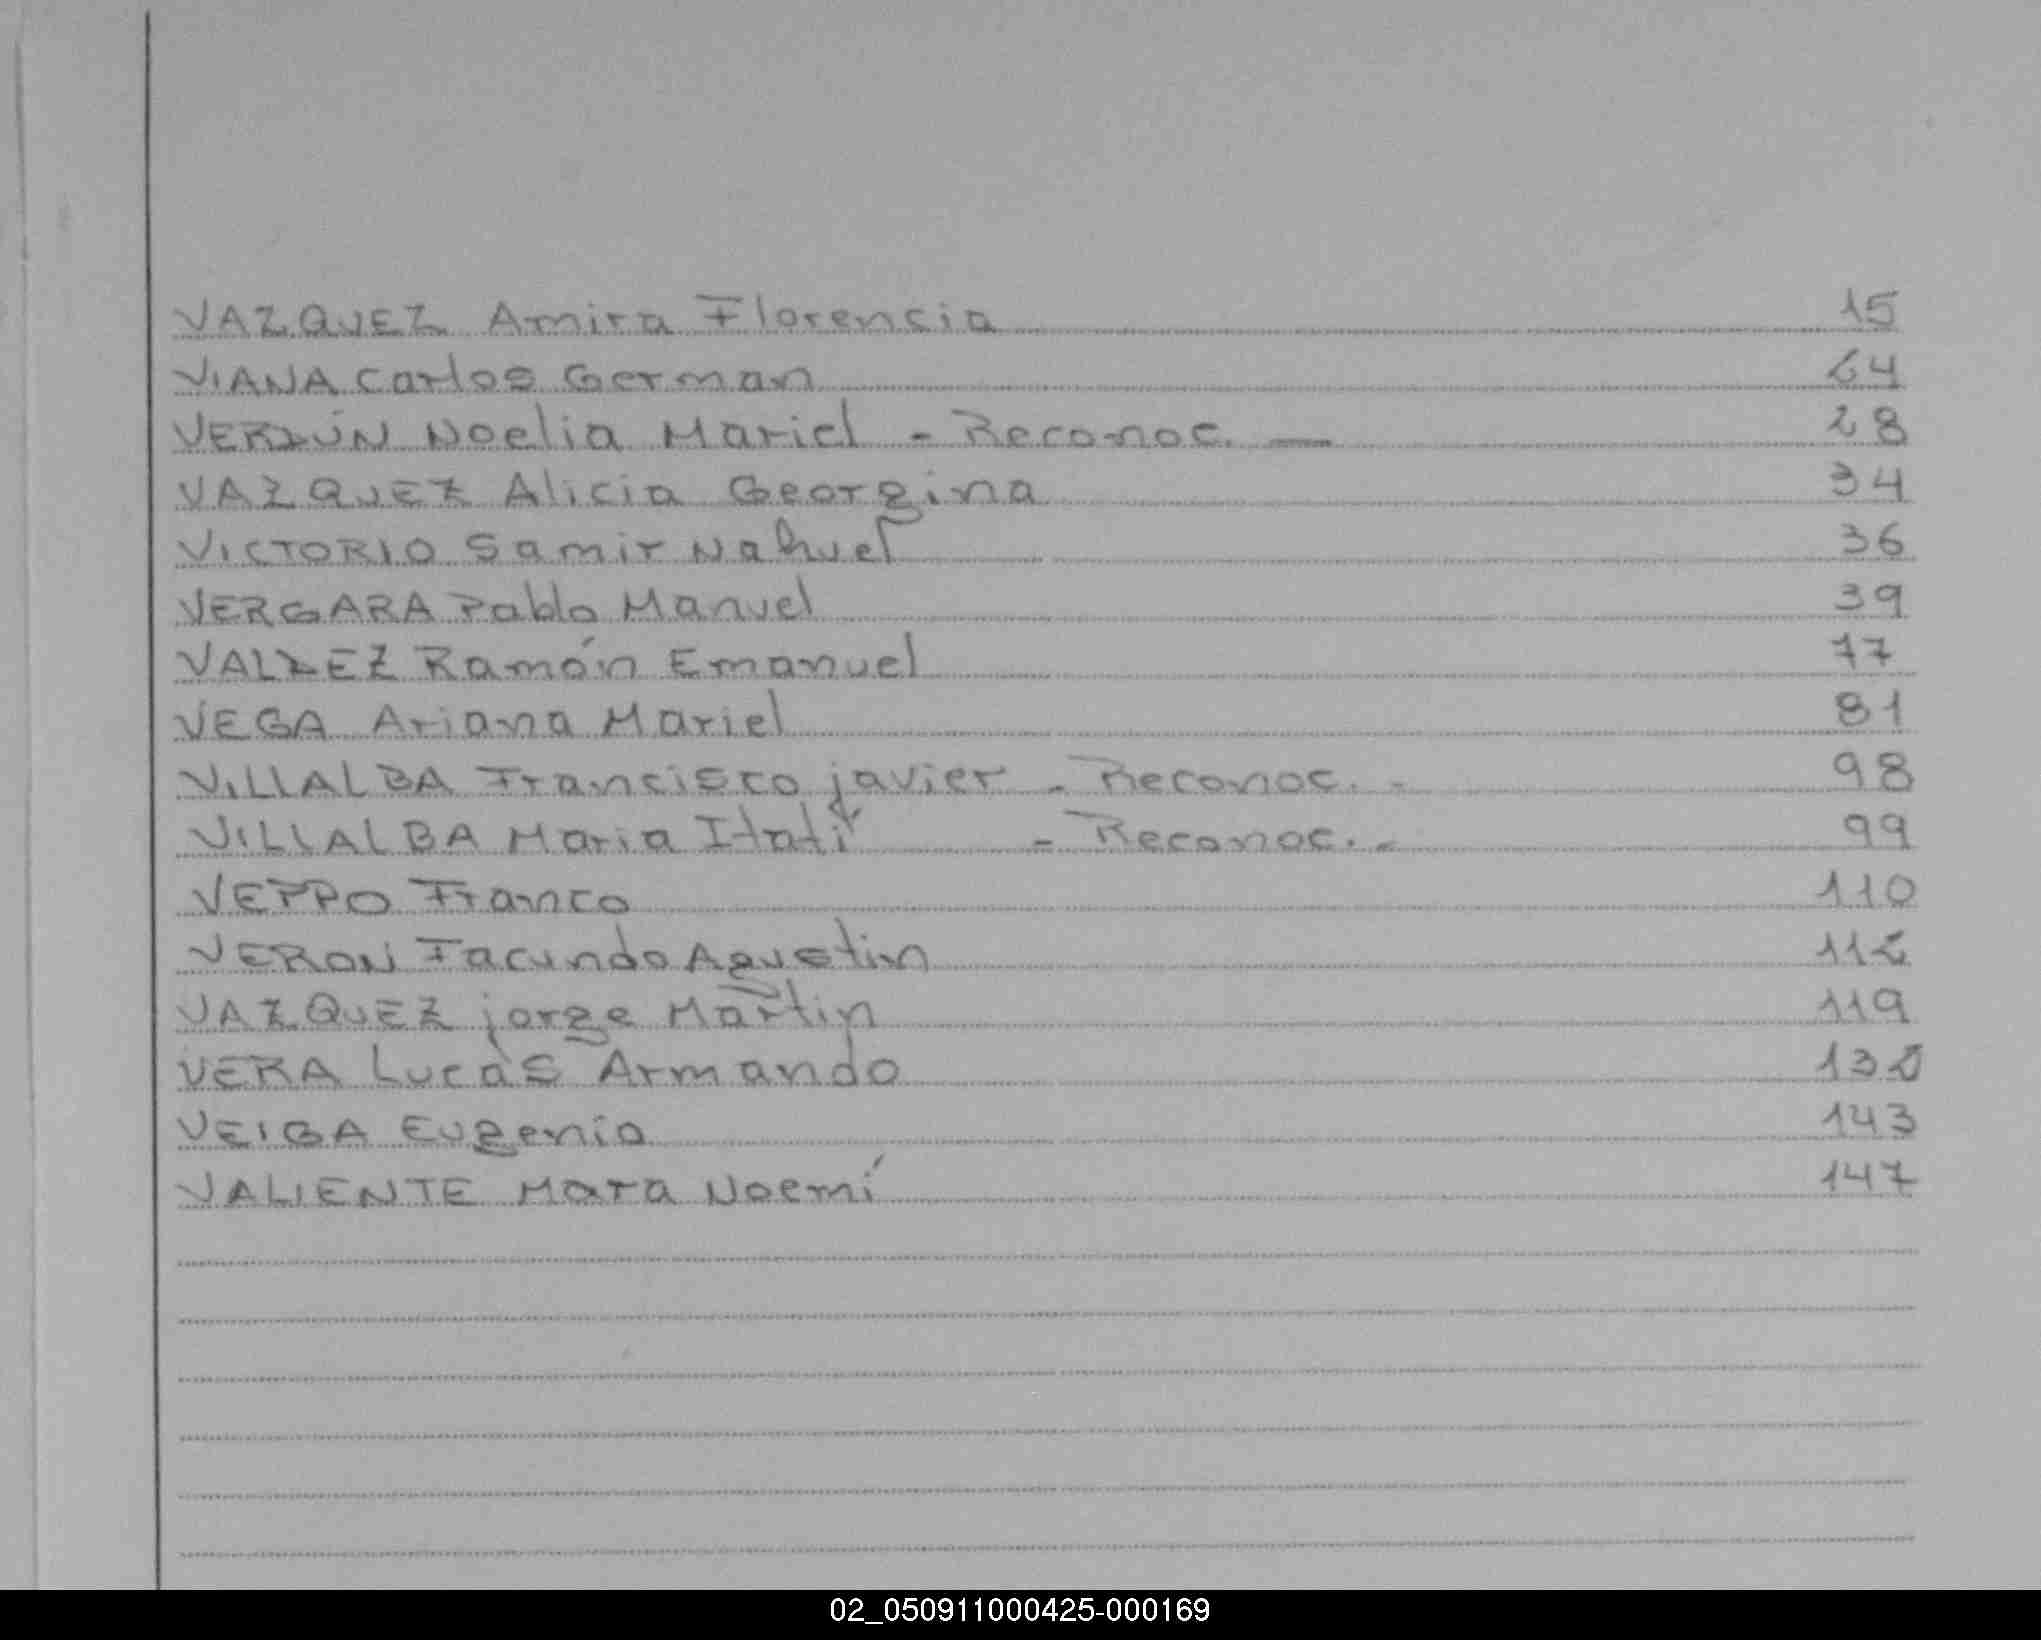 VAZQUEZ Amira Florencia 15
VIANA Carlos German 24
VERDÚN Noelia Mariel - Reconoc. — 28
VAZQUEZ Alicia Georgina 34
VICTORIO Samir Nahuel 36
VERGARA Pablo Manuel 39
VALDEZ Ramón Emanuel 77
VEGA Ariana Mariel 81
VILLALBA Francisco javier - Reconoc. - 98
VILLALBA Maria Itatí - Reconoc. - 99
VEPPO Franco 110
VERON Facundo Agustin 112
VAZQUEZ jorge Martin 119
VERA Lucas Armando
VEIGA Eugenio 143
VALIENTE Mara Noemí 147
02_050911000425-000169